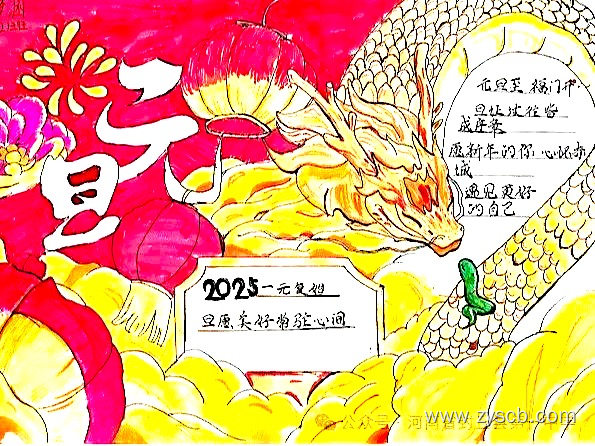 元旦
元旦至 福门开
旦让过往皆
成序章
愿新年的你 心怀亦
城
遇见更好
的自己
2025一元复始
旦愿美好常驻心间
公众号
www.zyscb.com